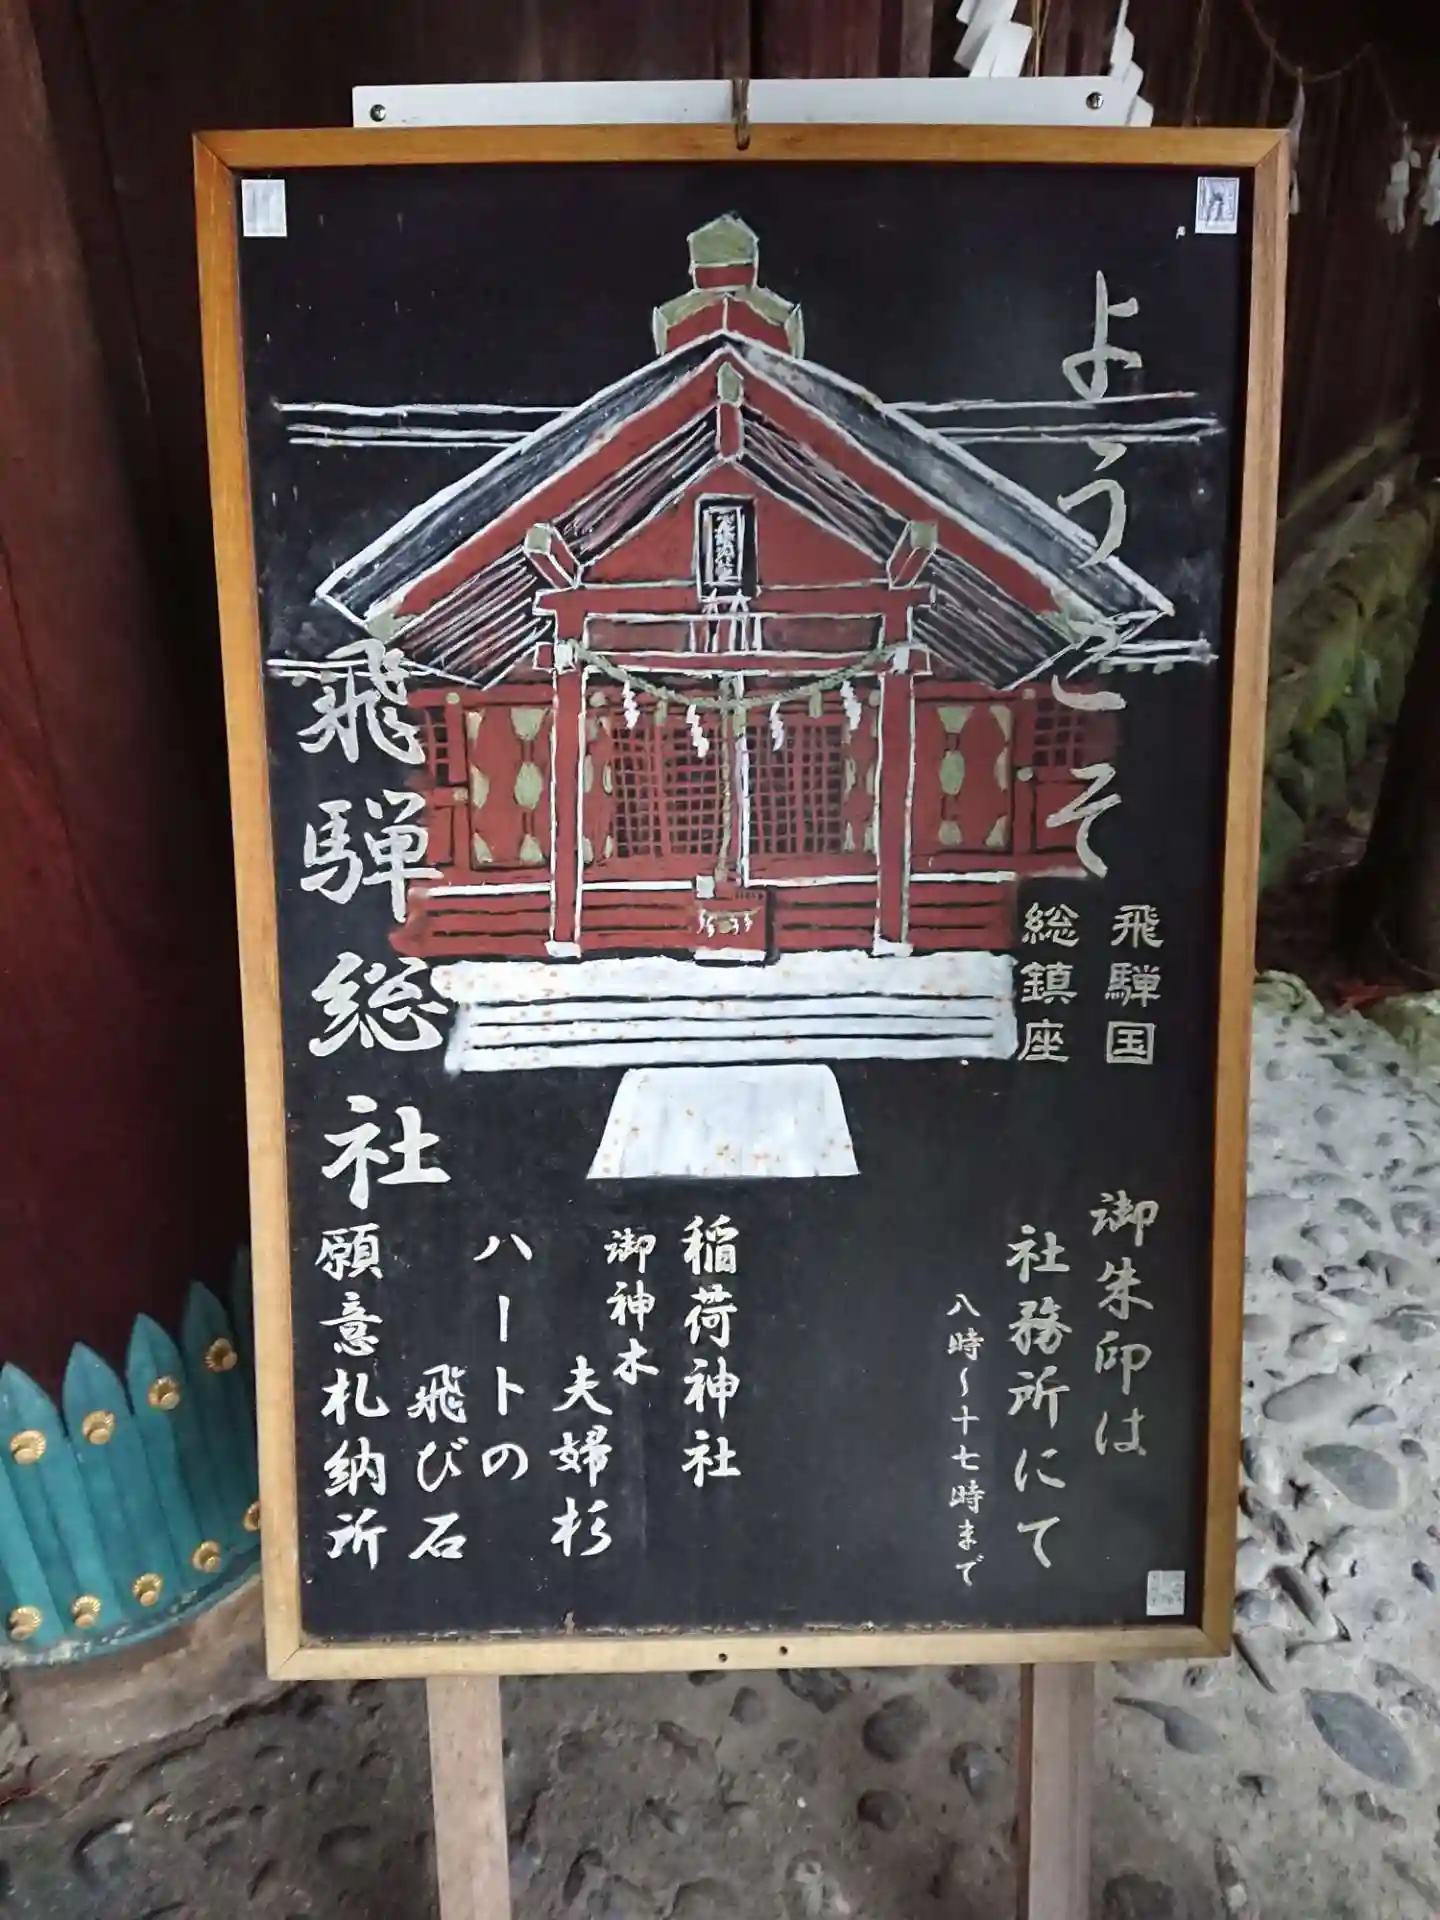 ようこそ
飛騨国
総鎮座
飛騨総社
御朱印は
社務所にて
八時〜十七時まで
稲荷神社
御神木
夫婦杉
ハートの
飛び石
願意札納所